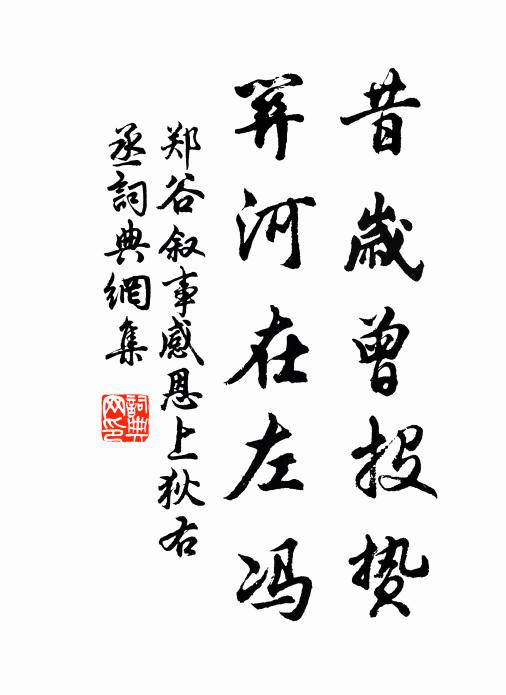 昔歲曾投贽
關河在左冯
郑谷叙事感恩上狄右
丞詞典網集
詞典
网印